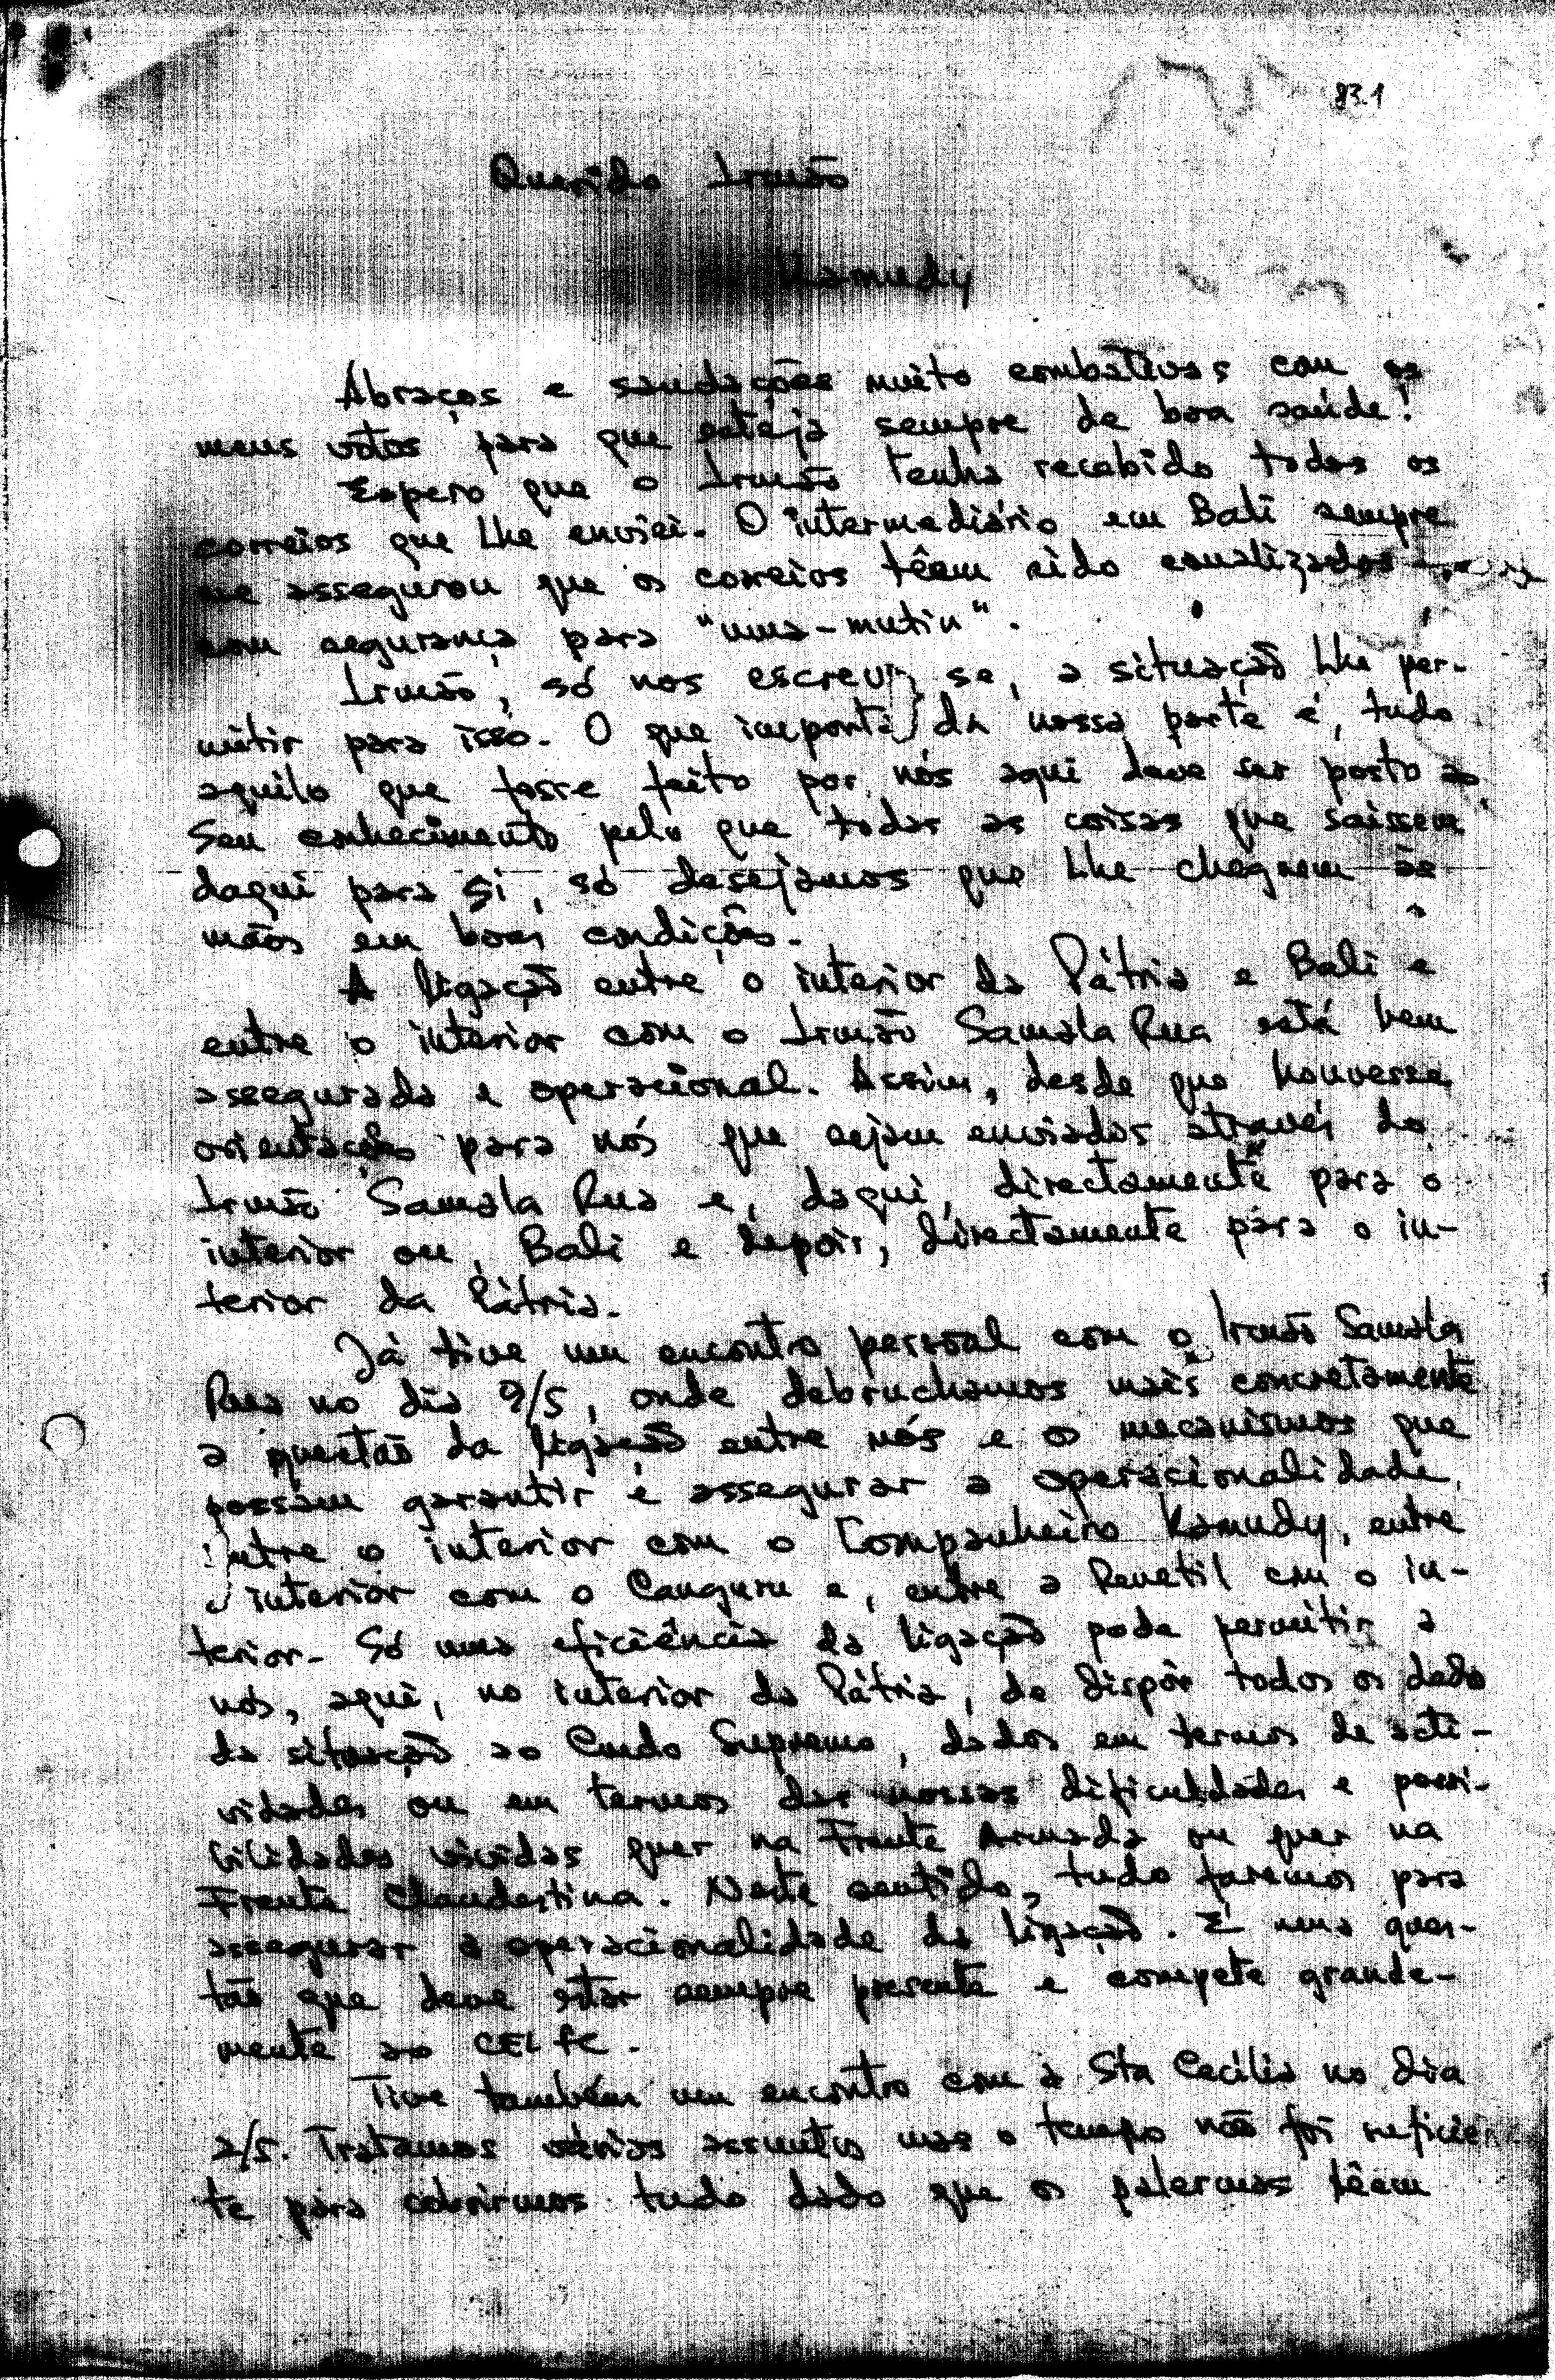 83.1
Querido Irmão
Kamudy
Abraços e saudações muito combativas com os
meus votos para que esteja sempre de boa saúde!
Espero que o Irmão tenha recebido todos os
correios que lhe enviei. O intermediário em Bali sempre
me assegurou que os correios têem sido canalizados
com segurança para "uma-mutin".
Irmão, só nos escreva se, a situação lhe per-
mitir para isso. O que importa da nossa parte é, tudo
aquilo que fosse feito por nós aqui deve ser posto ao
Seu conhecimento pelo que todas as coisas que saissem
daqui para Si, só desejamos que lhe cheguem às
mãos em boas condições.
A ligação entre o interior da Pátria e Bali e
entre o interior com o Irmão Samala Rua está bem
assegurada e operacional. Assim, desde que houvesse
orientações para nós que sejam enviadas através do
Irmão Samala Rua e, daqui, directamente para o
interior ou, Bali e depois, directamente para o in-
terior da Pátria.
Já tive um encontro pessoal com o Irmão Samala
Rua no dia 9/5, onde debruchamos mais concretamente
a questão da ligação entre nós e os mecanismos que
possam garantir e assegurar a operacionalidade
entre o interior com o Companheiro Kamudy, entre
o interior com o Canguru e, entre a Renetil com o in-
terior. Só uma eficiência da ligação pode permitir a
nós, aqui, no interior da Pátria, de dispôr todos os dados
da situação ao Cmdo Supremo, dados em termos de acti-
vidades ou em termos das nossas dificuldades e possi-
bilidades vividas quer na Frente Armada ou quer na
Frente Clandestina. Neste sentido, tudo faremos para
assegurar a operacionalidade da ligação. É uma ques-
tão que deve estar sempre presente e compete grande-
mente ao CEL/FC.
Tive também um encontro com a Sta Cecília no dia
2/5. Tratamos vários assuntos mas o tempo não foi suficien
te para cobrirmos tudo dado que os palermas têem